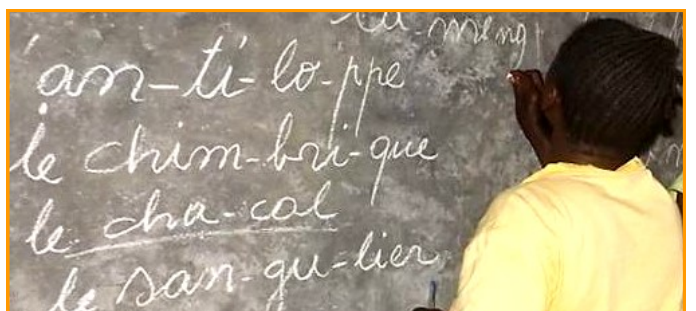 'an-ti-lo-ppe
le chim-bri-que
le cha-cal
le san-gu-lier